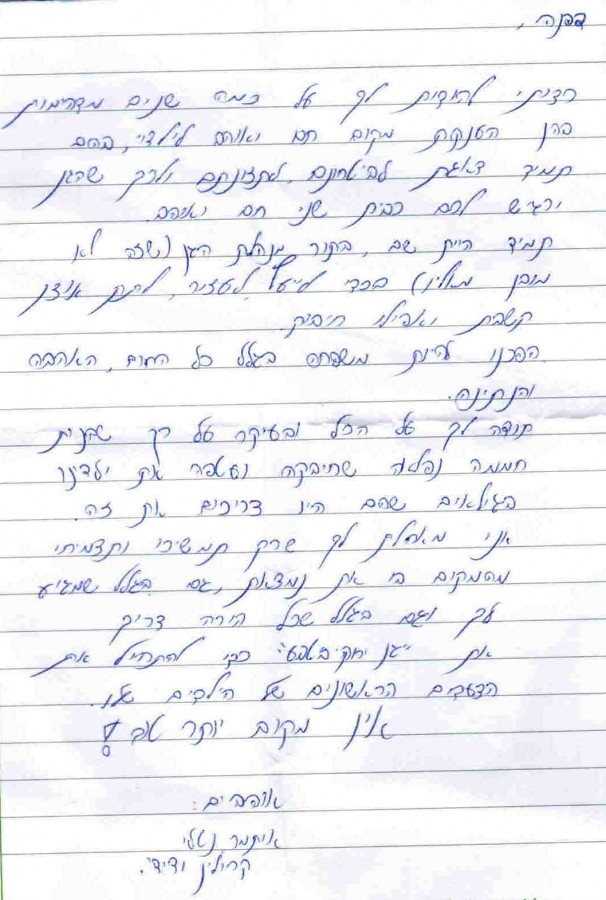 דפנה,
רציתי להודות לך על כמה שנים מדהימות
בהן הענקת מקום חם ואוהב לילדיי, בהם
תמיד דאגת לביטחונם, לתזונתם ולכך שהגן
ירגיש להם כבית שני חם ואוהב.
תמיד היית שם, בתור מנהלת הגן (שזה לא
מובן מאליו) בכדי לייעץ, לעזור, לתת אוזן
קשבת ואפילו חיבוק.
הפכנו להיות משפחה בגלל כל החום, האהבה
והנתינה.
תודה לך על הכל ובעיקר על כך שבנית
חממה נפלאה שחיבקה ועטפה את ילדנו
בגילאים שהם היו צריכים את זה.
אני מאחלת לך שרק תמשיכי ותצמיחי
מהמקום בו את נמצאת, גם בגלל שמגיע
לך וגם בגלל שכל הורה צריך
את "גן" כדי להתחיל את
הצעדים הראשונים של הילדים שלו.
אין מקום יותר טוב!
אוהבים:
איתמר, נטלי
קרולין ודידי.